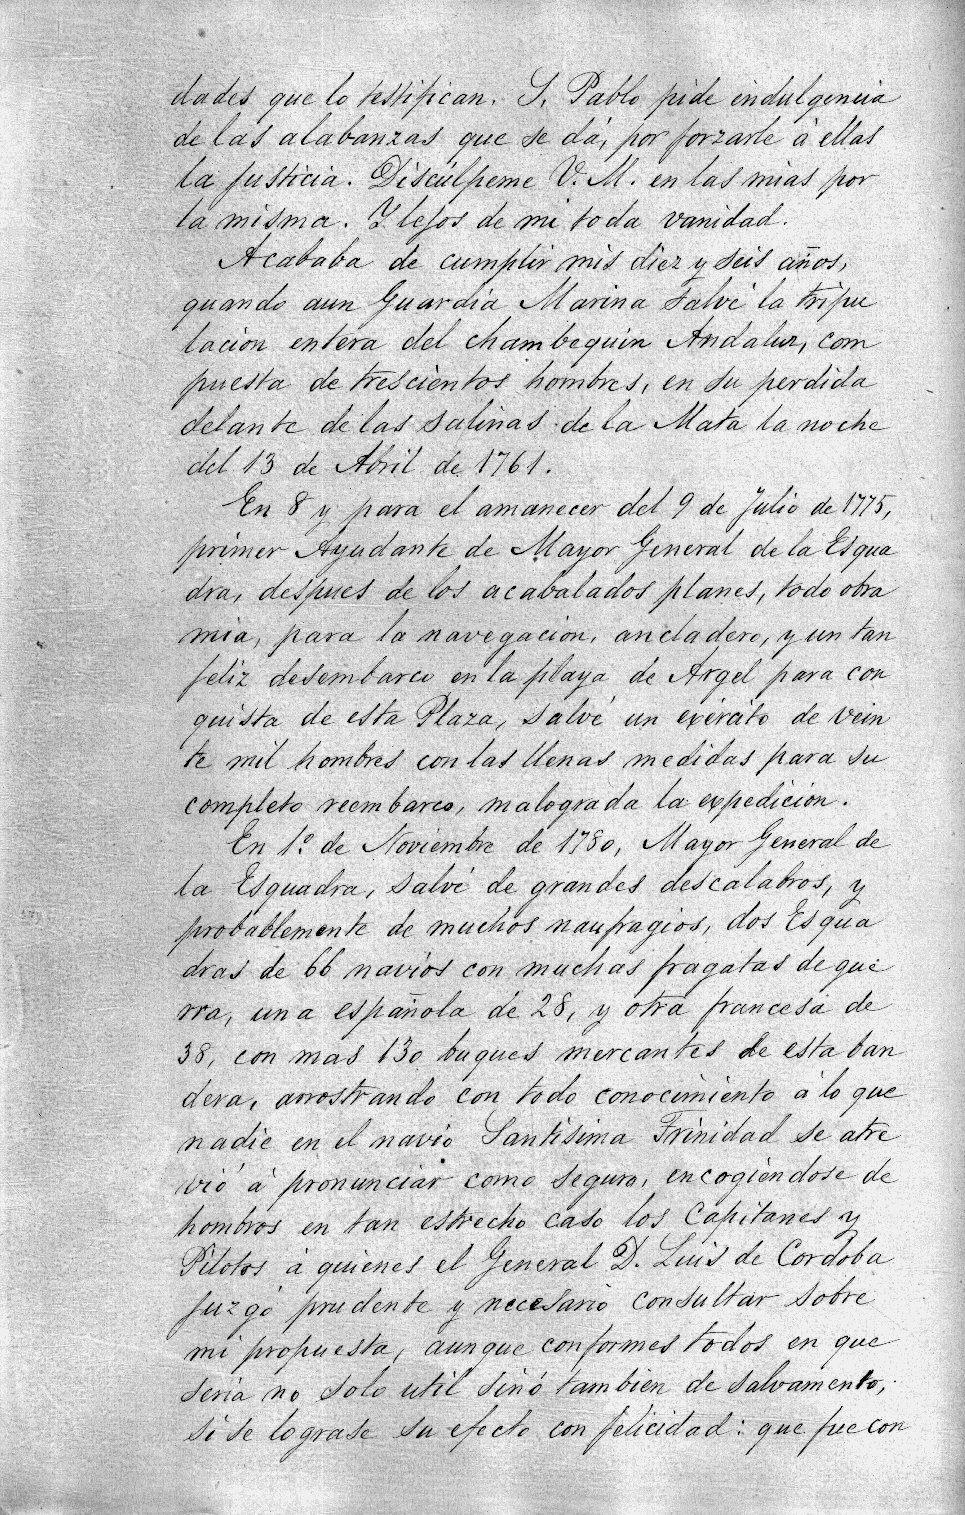 dades que lo testifican. S. Pablo pide indulgencia
de las alabanzas que se dá, por forzarle à ellas
la justicia. Discúlpeme V. M. en las mias por
la misma. Y lejos de mi toda vanidad.
Acababa de cumplir mis diez y seis años,
quando aun Guardia Marina salvé la tripu
lacion entera del chambequin Andaluz, com
puesta de trescientos hombres, en su perdida
delante de las salinas de la Mata la noche
del 13 de Abril de 1761.
En 8 y para el amanecer del 9 de Julio de 1775,
primer Ayudante de Mayor General de la Esqua
dra, despues de los acabalados planes, todo obra
mia, para la navegacion, ancladero, y un tan
feliz desembarco en la playa de Argel para con
quista de esta Plaza, salvé un exército de vein
te mil hombres con las llenas medidas para su
completo reembarco, malograda la expedicion.
En 1º de Noviembre de 1780, Mayor General de
la Esquadra, salvé de grandes descalabros, y
probablemente de muchos naufragios, dos Esqua
dras de 66 navios con muchas fragatas de gue
rra, una española de 28, y otra francesa de
38, con mas 130 buques mercantes de esta ban
dera, arrostrando con todo conocimiento à lo que
nadie en el navio Santisima Trinidad se atre
vió à pronunciar como seguro, encogiéndose de
hombros en tan estrecho caso los Capitanes y
Pilotos à quienes el General D. Luis de Cordoba
juzgó prudente y necesario consultar sobre
mi propuesta, aunque conformes todos en que
seria no solo util sinó tambien de salvamento,
si se lograse su efecto con felicidad: que fue con